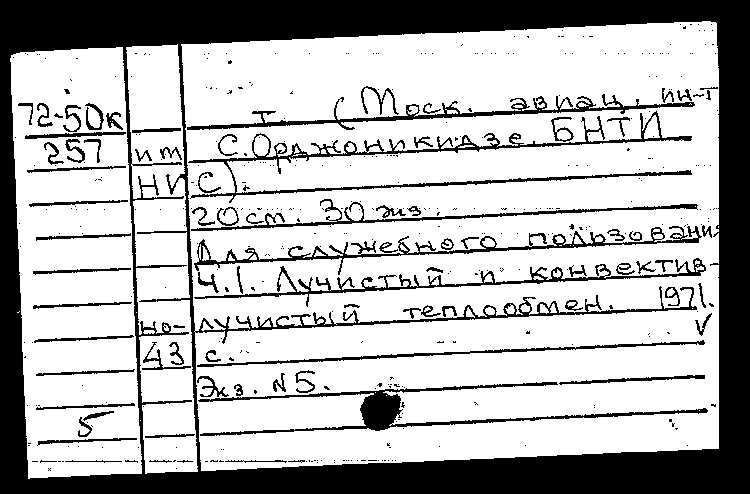 72-50к т. (Моск. авиац. ин-т
257 им С. Орджоникидзе. БНТИ
НИС).
20 см. 30 экз.
Для служебного пользования
Ч.1. Лучистый и конвектив-
но-лучистый теплообмен. 1971.
43 с.
Экз. N5.
5